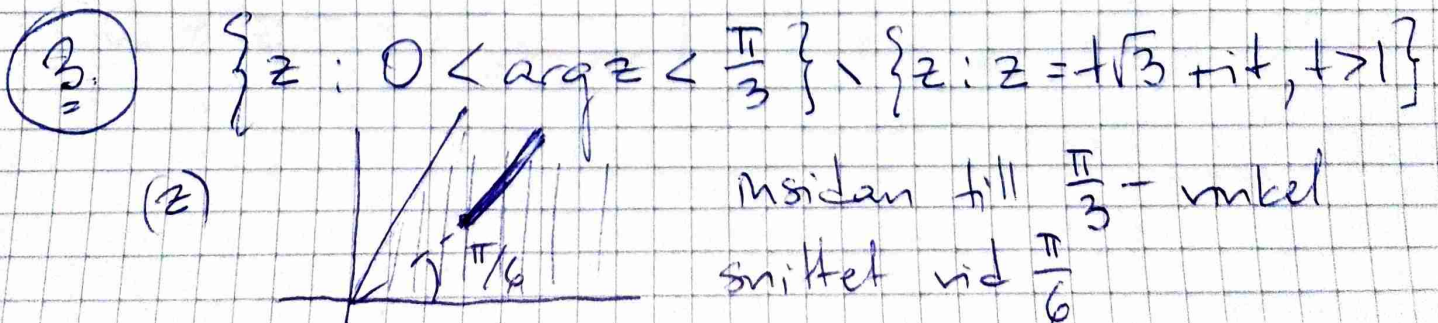 3. {z : 0 < arg z < π/3} \ {z : z = t√3 + it, t > 1}
(z) π/6 insidan till π/3 - vinkel
snittet vid π/6